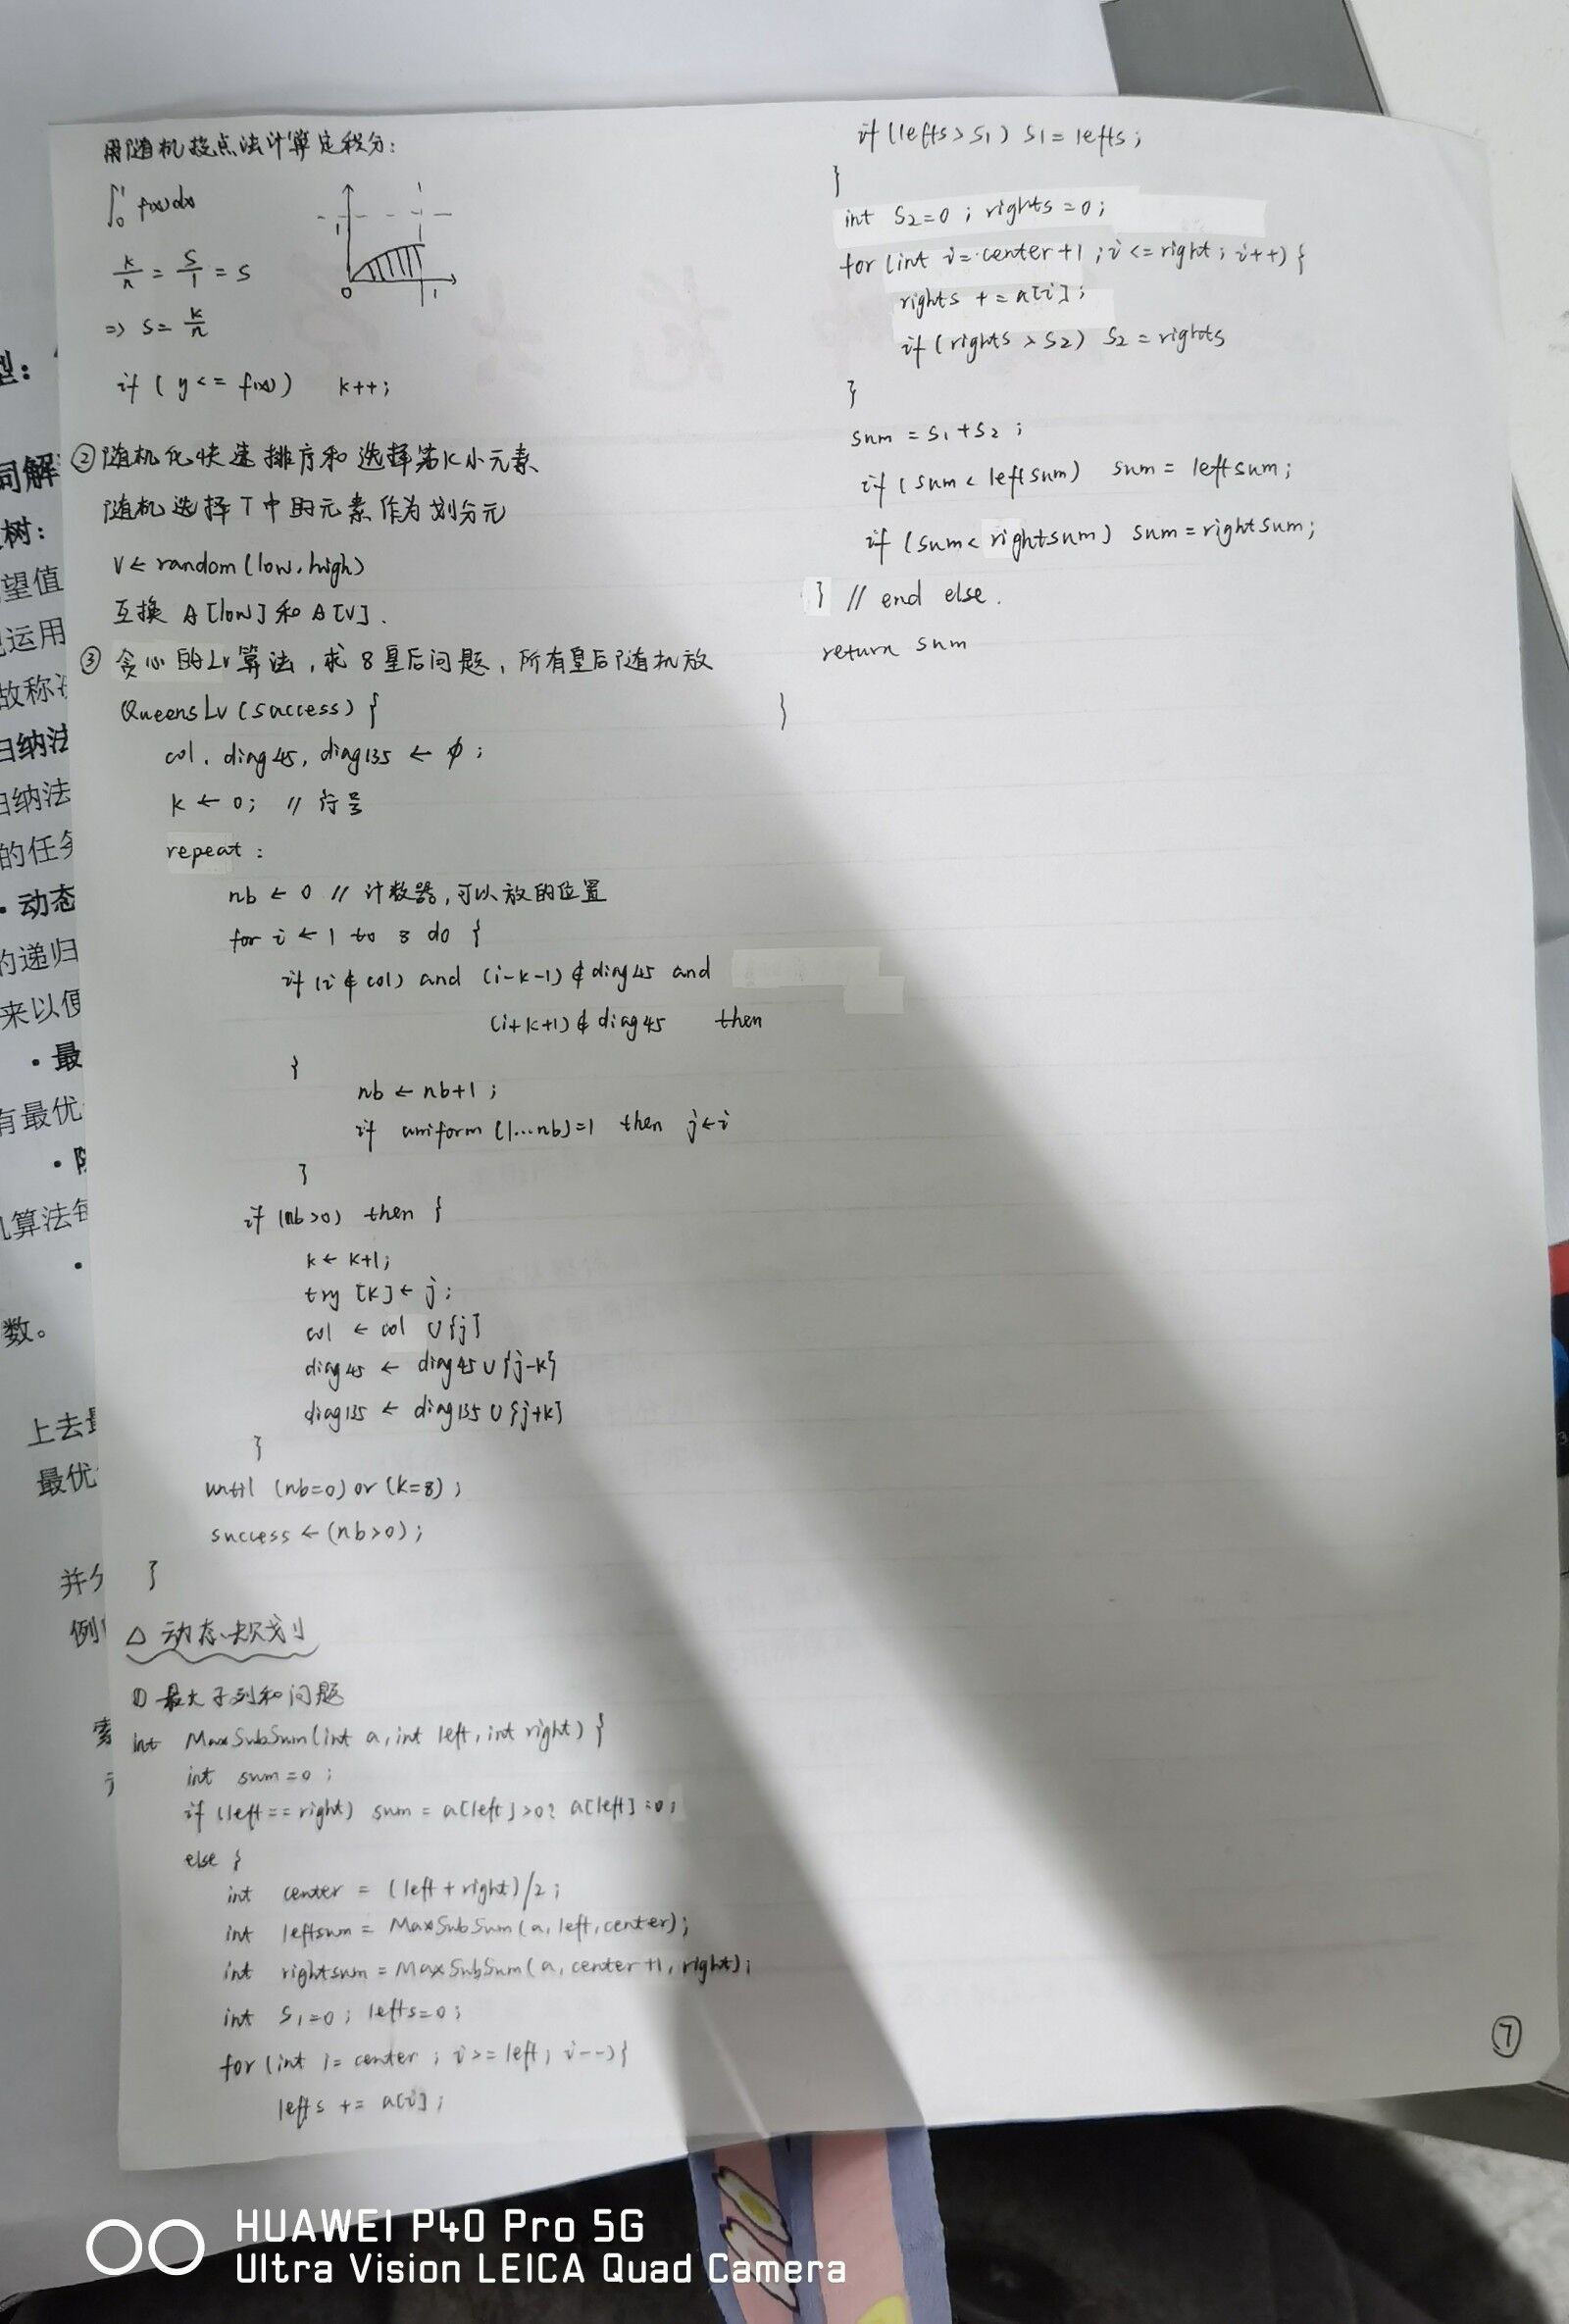 用随机投点法计算定积分:
∫₀¹ f(x)dx
k/n = S/1 = S
⇒ S = k/n
1
0
1
if ( y <= f(x) ) k++;
② 随机化快速排序和选择第K小元素
随机选择T中的元素作为划分元
V ← random(low, high)
互换 A[low] 和 A[V].
③ 贪心的LV算法,求8皇后问题,所有皇后随机放
QueensLv (success) {
col, diag45, diag135 ← ϕ ;
k ← 0; // 行号
repeat :
nb ← 0 // 计数器,可以放的位置
for i ← 1 to 8 do {
if (i ∉ col) and (i-k-1) ∉ diag45 and
(i+k+1) ∉ diag45 then
{
nb ← nb+1 ;
if uniform (1...nb)=1 then j←i
}
if (nb>0) then {
k ← k+1;
try [k] ← j;
col ← col ∪{j}
diag45 ← diag45 ∪{j-k}
diag135 ← diag135 ∪{j+k}
}
until (nb=0) or (k=8) ;
success ← (nb>0) ;
}
△ 动态规划
① 最大子列和问题
int MaxSubSum(int a, int left, int right) {
int sum=0 ;
if (left == right) sum = a[left]>0? a[left]:0;
else {
int center = (left + right)/2 ;
int leftsum = MaxSubSum(a, left, center);
int rightsum = MaxSubSum(a, center+1, right);
int S1=0 ; lefts=0;
for (int i= center ; i>= left; i--) {
lefts += a[i];
if (lefts > S1) S1 = lefts;
}
int S2=0 ; rights =0;
for (int i= center+1 ; i <= right ; i++) {
rights += a[i];
if (rights > S2) S2 = rights
}
sum = S1+S2 ;
if (sum < leftsum) sum = leftsum;
if (sum < rightsum) sum = rightsum;
} // end else.
return sum
}
⑦
型:
词解
树:
望值
运用
故称
归纳法
归纳法
的任务
• 动态
的递归
来以便
• 最
有最优
•
算法每
•
数。
上去
最优
并分
例
索
HUAWEI P40 Pro 5G
Ultra Vision LEICA Quad Camera